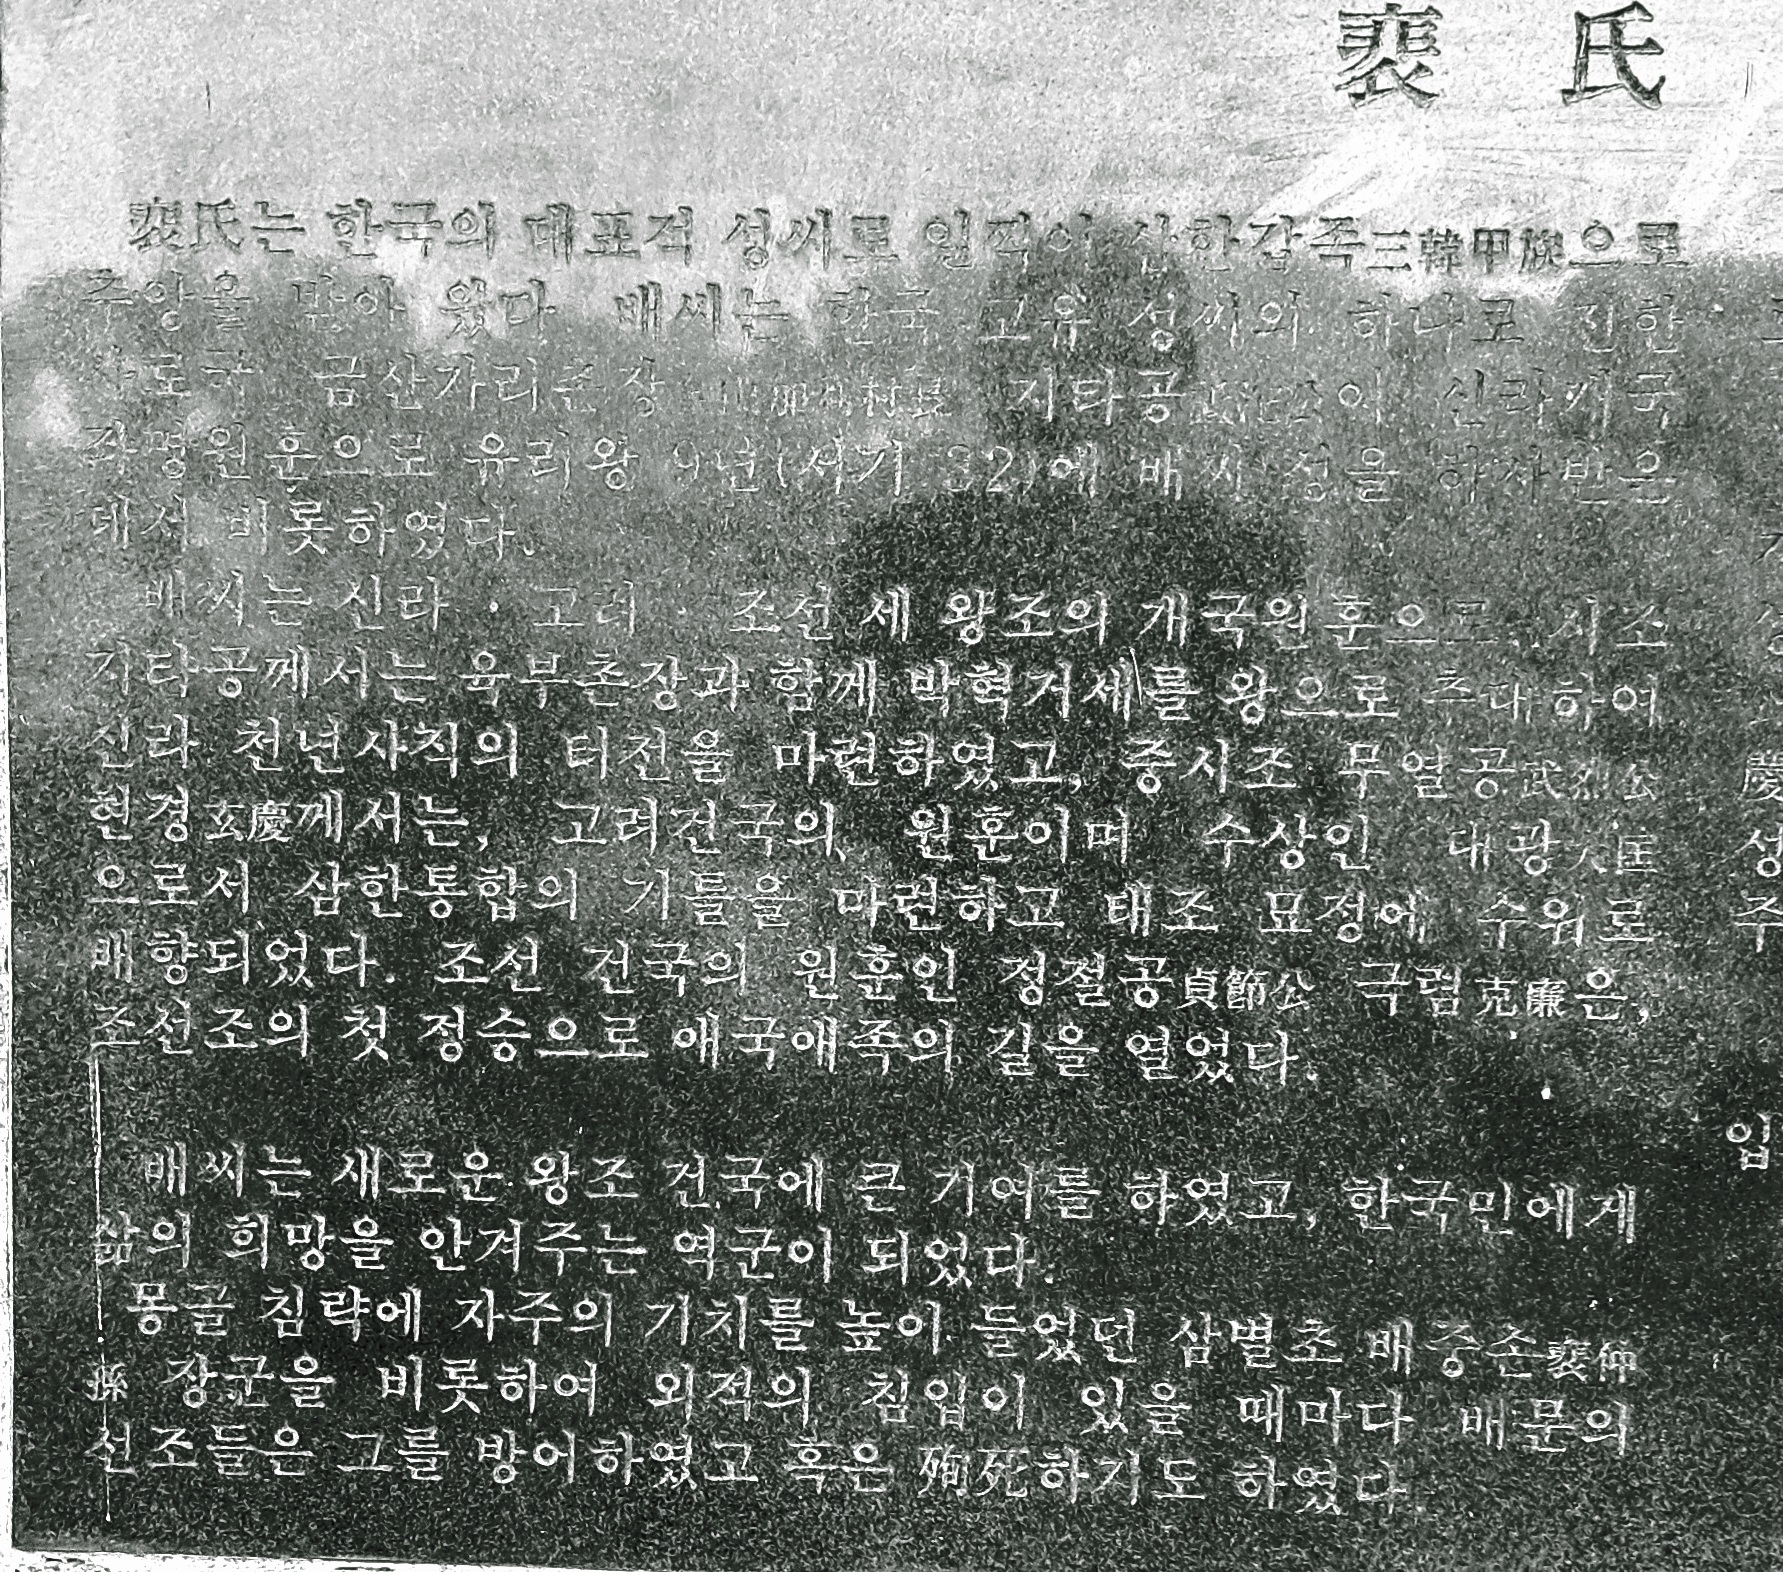 裵 氏
裵氏는 한국의 대표적 성씨로 일찍이 삼한갑족三韓甲族으로
추앙을 받아 왔다. 배씨는 한국 고유 성씨의 하나로 진한
사로국 금산가리촌장 金山加利村長 지타공祗沱公이 신라개국
좌명원훈으로 유리왕 9년(서기 32)에 배씨 성을 하사받은
데서 비롯하였다.
배씨는 신라 · 고려 · 조선 세 왕조의 개국원훈으로, 시조
지타공께서는 육부촌장과 함께 박혁거세를 왕으로 추대하여
신라 천년사직의 터전을 마련하였고, 중시조 무열공武烈公
현경玄慶께서는, 고려건국의 원훈이며 수상인 대광大匡
으로서 삼한통합의 기틀을 마련하고 태조 묘정에 수위로
배향되었다. 조선 건국의 원훈인 정절공貞節公 극렴克廉은,
조선조의 첫 정승으로 애국애족의 길을 열었다.
배씨는 새로운 왕조 건국에 큰 기여를 하였고, 한국민에게
삶의 희망을 안겨주는 역군이 되었다.
몽골 침략에 자주의 기치를 높이 들었던 삼별초 배중손裵仲
孫 장군을 비롯하여 외적의 침입이 있을 때마다 배문의
선조들은 고를 방어하였고 혹은 殉死하기도 하였다.
慶
성
주
입